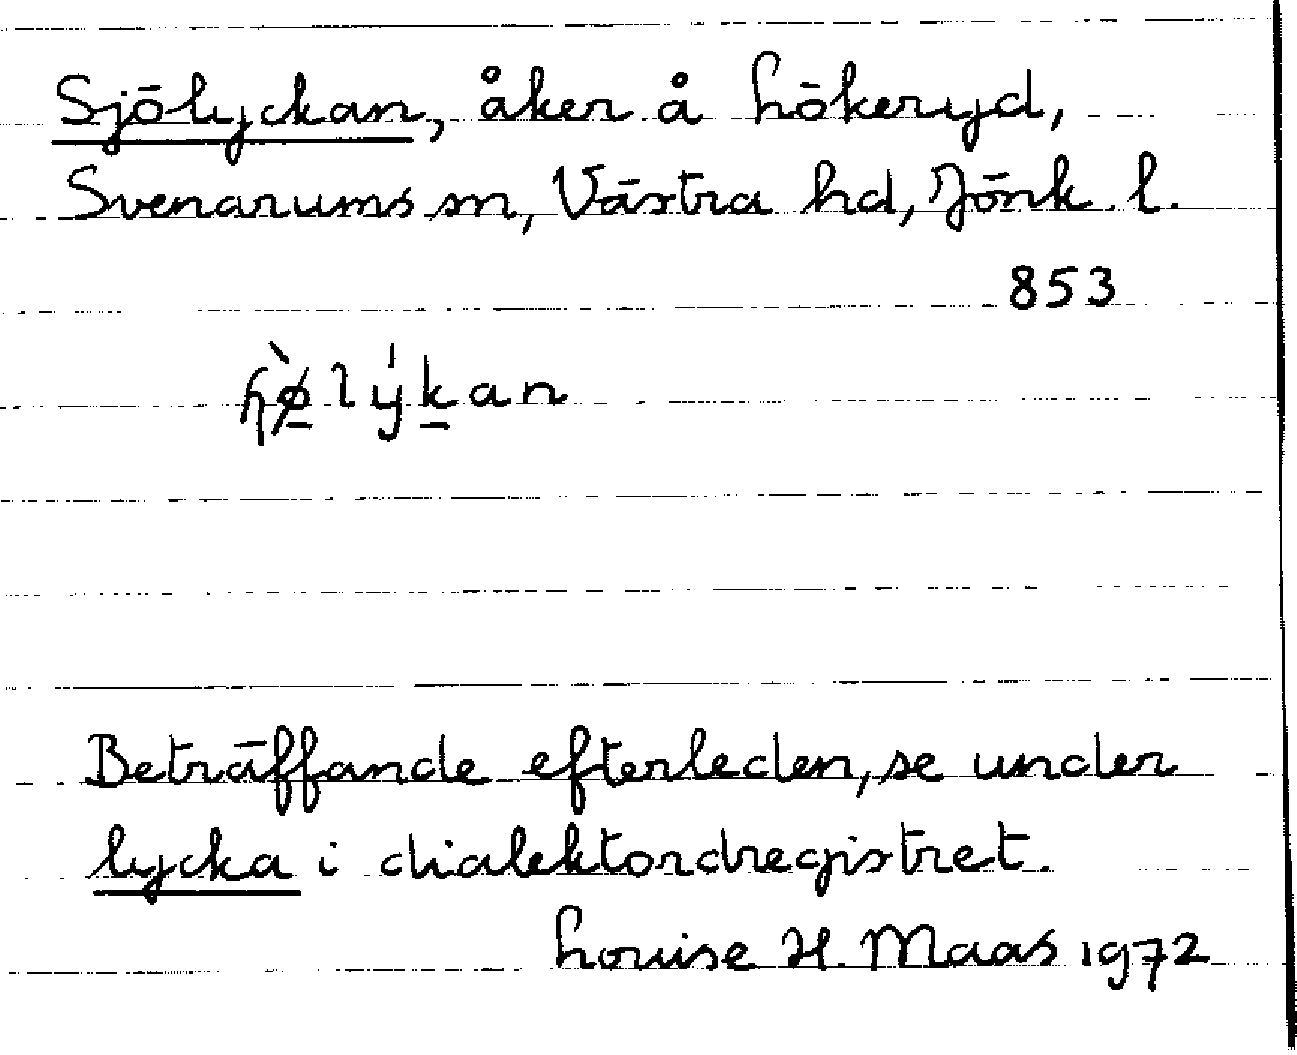 Sjölyckan, åker å Lökeryd,
Svenarums sn, Västra hd, Jönk. l.
853
ɧø̠̀lýk̠an
Beträffande efterleden, se under
lycka i dialektordregistret.
Louise H. Maas 1972